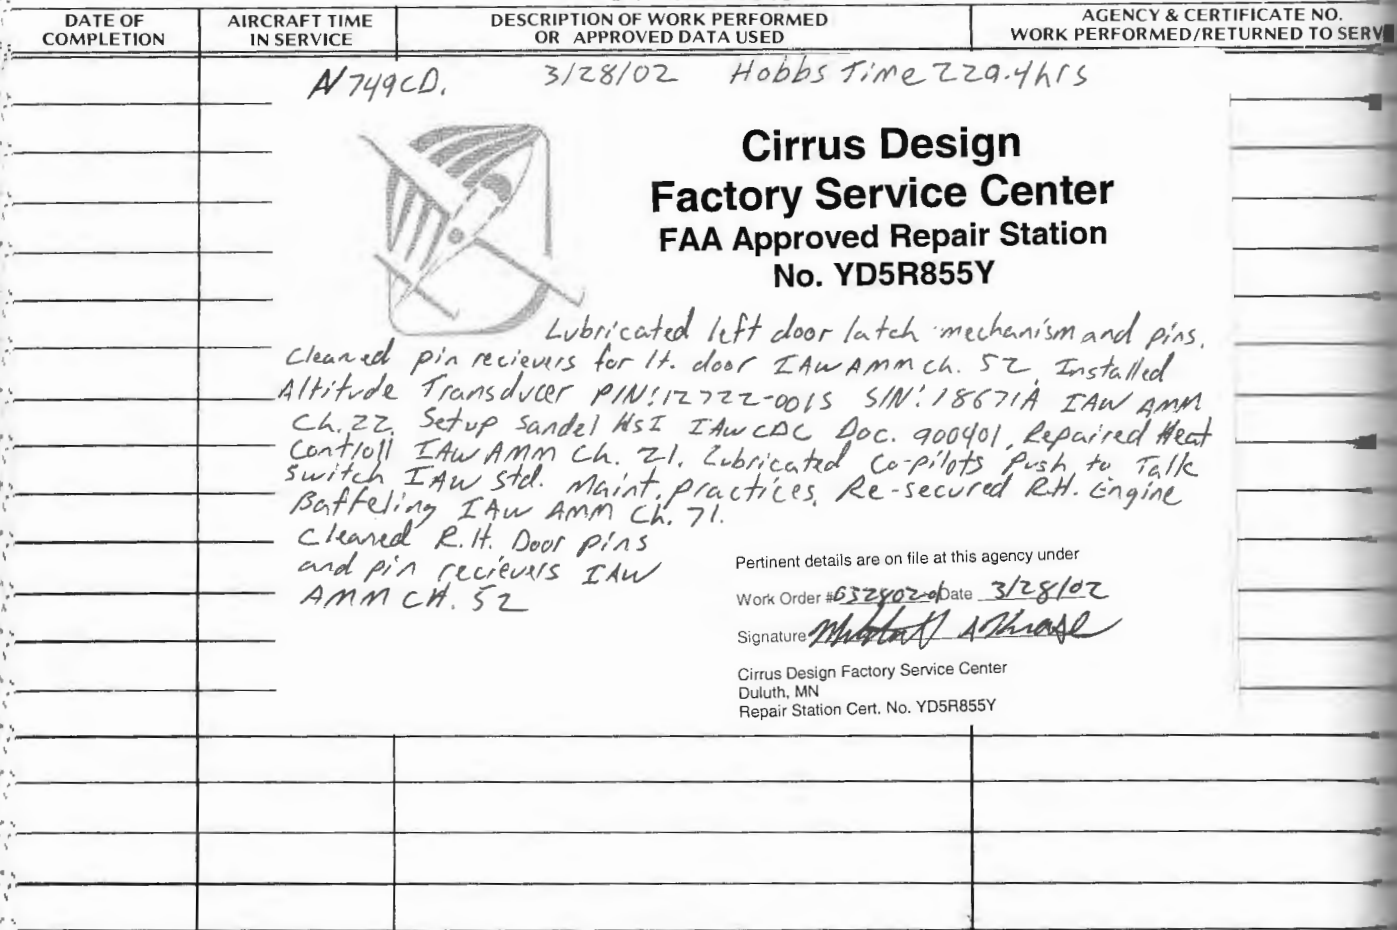 DATE OF COMPLETION
AIRCRAFT TIME IN SERVICE
DESCRIPTION OF WORK PERFORMED OR APPROVED DATA USED
AGENCY & CERTIFICATE NO.
WORK PERFORMED/RETURNED TO SERV
N749CD. 3/28/02 Hobbs Time 229.4hrs
Cirrus Design
Factory Service Center
FAA Approved Repair Station
No. YD5R855Y
Lubricated left door latch mechanism and pins.
Cleaned pin recievers for lt. door IAW AMM Ch. 52. Installed
Altitude Transducer P/N: 12722-0015 S/N: 18671A IAW AMM
Ch. 22. Setup Sandel HSI IAW CDC Doc. 900401. Repaired Heat
Controll IAW AMM Ch. 21. Lubricated Co-pilots Push to Talk
Switch IAW Std. Maint. practices. Re-secured R.H. Engine
Baffeling IAW AMM Ch. 71.
Cleaned R.H. Door pins
and pin recievers IAW
AMM CH. 52
Pertinent details are on file at this agency under
Work Order # Date 3/28/02
Signature
Cirrus Design Factory Service Center
Duluth, MN
Repair Station Cert. No. YD5R855Y